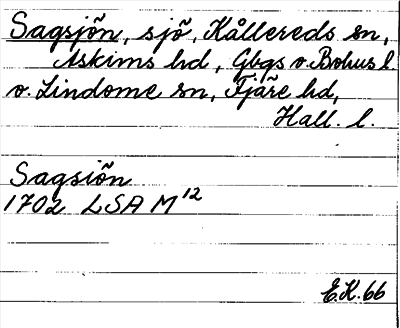 Sagsjön, sjö, Kållereds sn,
Askims hd, Gbgs o. Bohus l.
o. Lindome sn, Fjäre hd,
Hall. l.
Sagsiön
1702 LSA M 12
E.K. 66